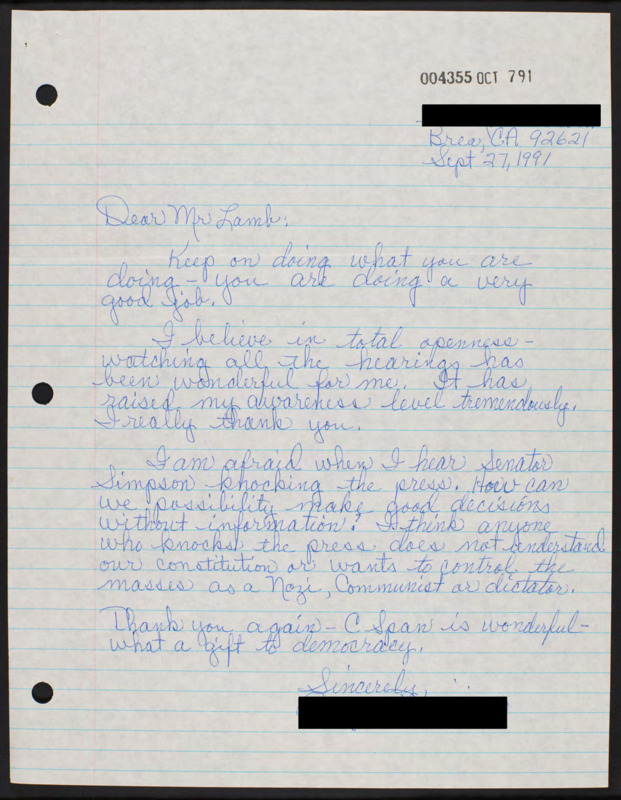 004355 OCT 791
Brea, CA 92621
Sept 27, 1991
Dear Mr Lamb:
Keep on doing what you are
doing - you are doing a very
good job.
I believe in total openness -
watching all the hearings has
been wonderful for me. It has
raised my awareness level tremendously.
I really thank you.
I am afraid when I hear Senator
Simpson knocking the press. How can
we possibility make good decisions
without information? I think anyone
who knocks the press does not understand
our constitution or wants to control the
masses as a Nazi, Communist or dictator.
Thank you again - C Span is wonderful -
what a gift to democracy.
Sincerely,